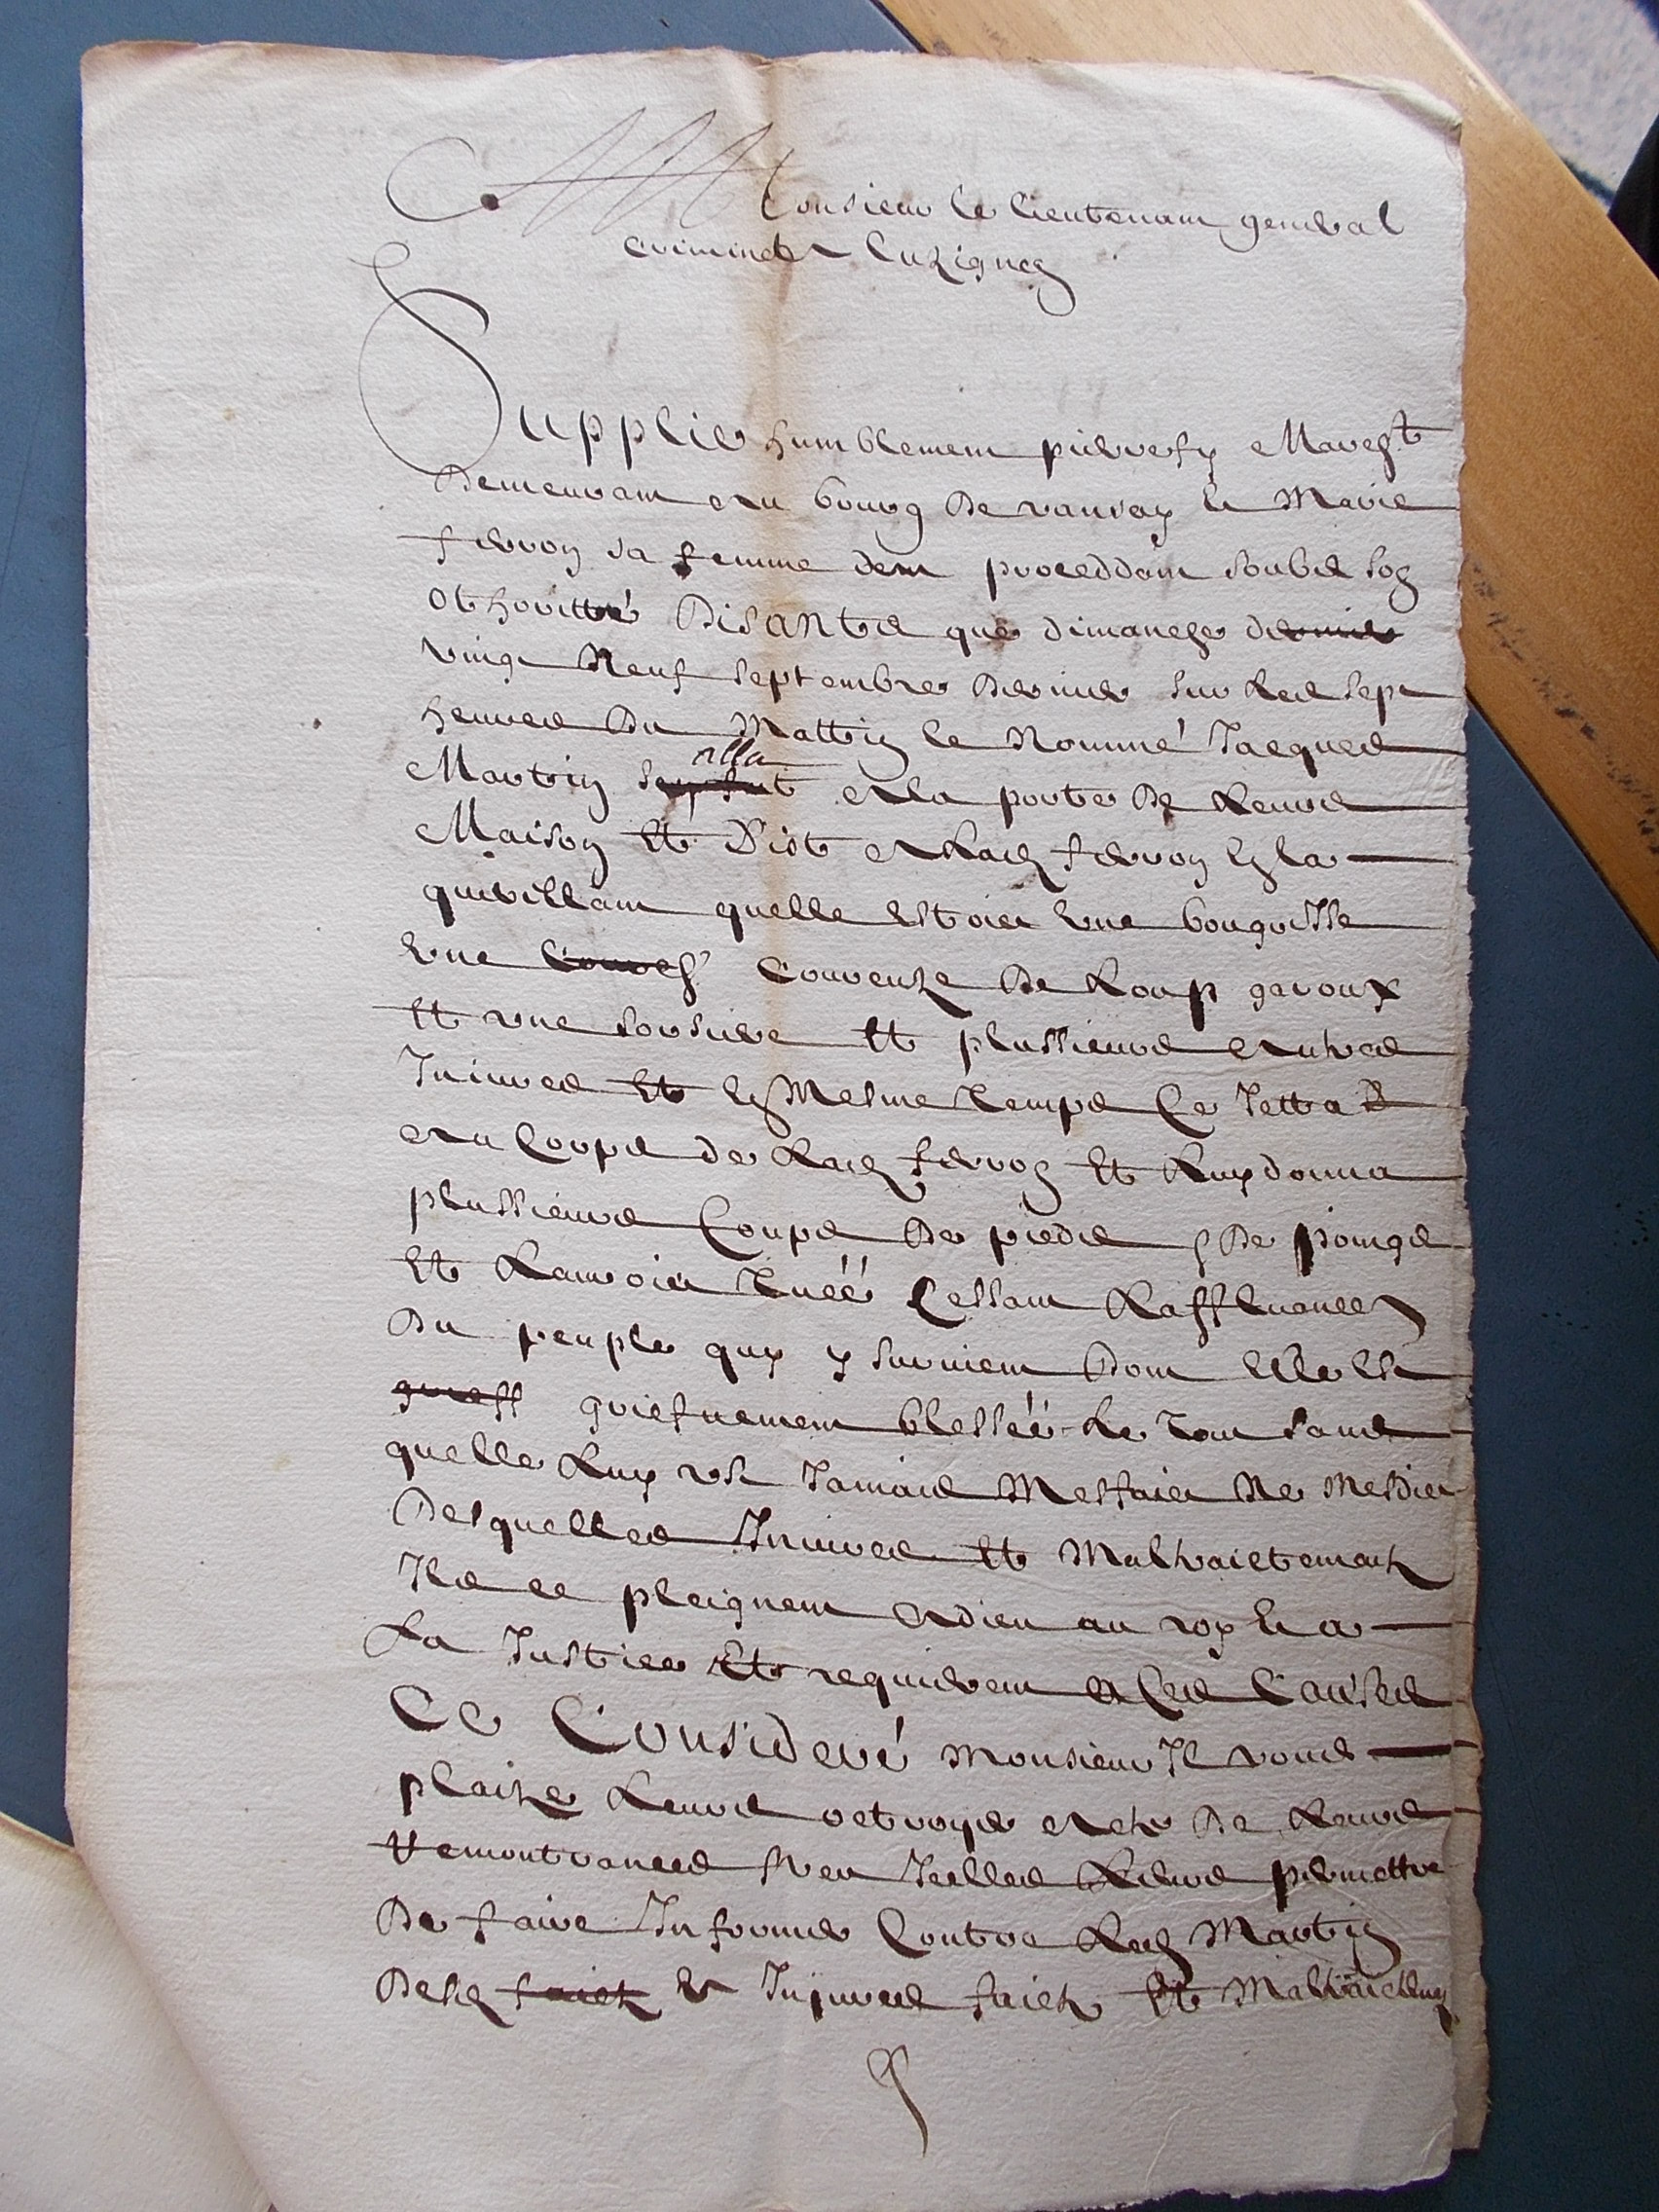 Monsieur le lieutenant general
criminel a Luzignen
Supplie humblement pierre Marest
demeurant au bourg de vansay et Marie
ferron sa femme de luy proceddant soubz son
othoritté disantz que dimanche dernier
vingt neuf septembre dernier sur les sept
heures du mattin le nommé Jacques
Martin alla a la porte de leurs
Maison et dist a lad ferron en la
querellant quelle estoit une bougresse
une coureuze de loup garoux
et une sorsiere et plussieurs autres
Iniures et en mesme temps ce jetta
au corps de lad ferron et luy donna
plussieurs coups de pieds et de poings
et lauroit tuéé cessant laffluance
du peuple quy y survient dont elle est
griefvement blesséé le tout sans
quelle luy est jamais mesfait ne mesdit
desquelles Iniures et maltraictemantz
Ilz ce pleignent a dieu au roy et a
la Justice et requierent a ces causes
Ce Consideré monsieur Il vous
plaize leurs octroyer acte de leurs
remontrances sur icelles leurs permettre
de faire Informer contre led Martin
desd Injures faictz et maltraictemens